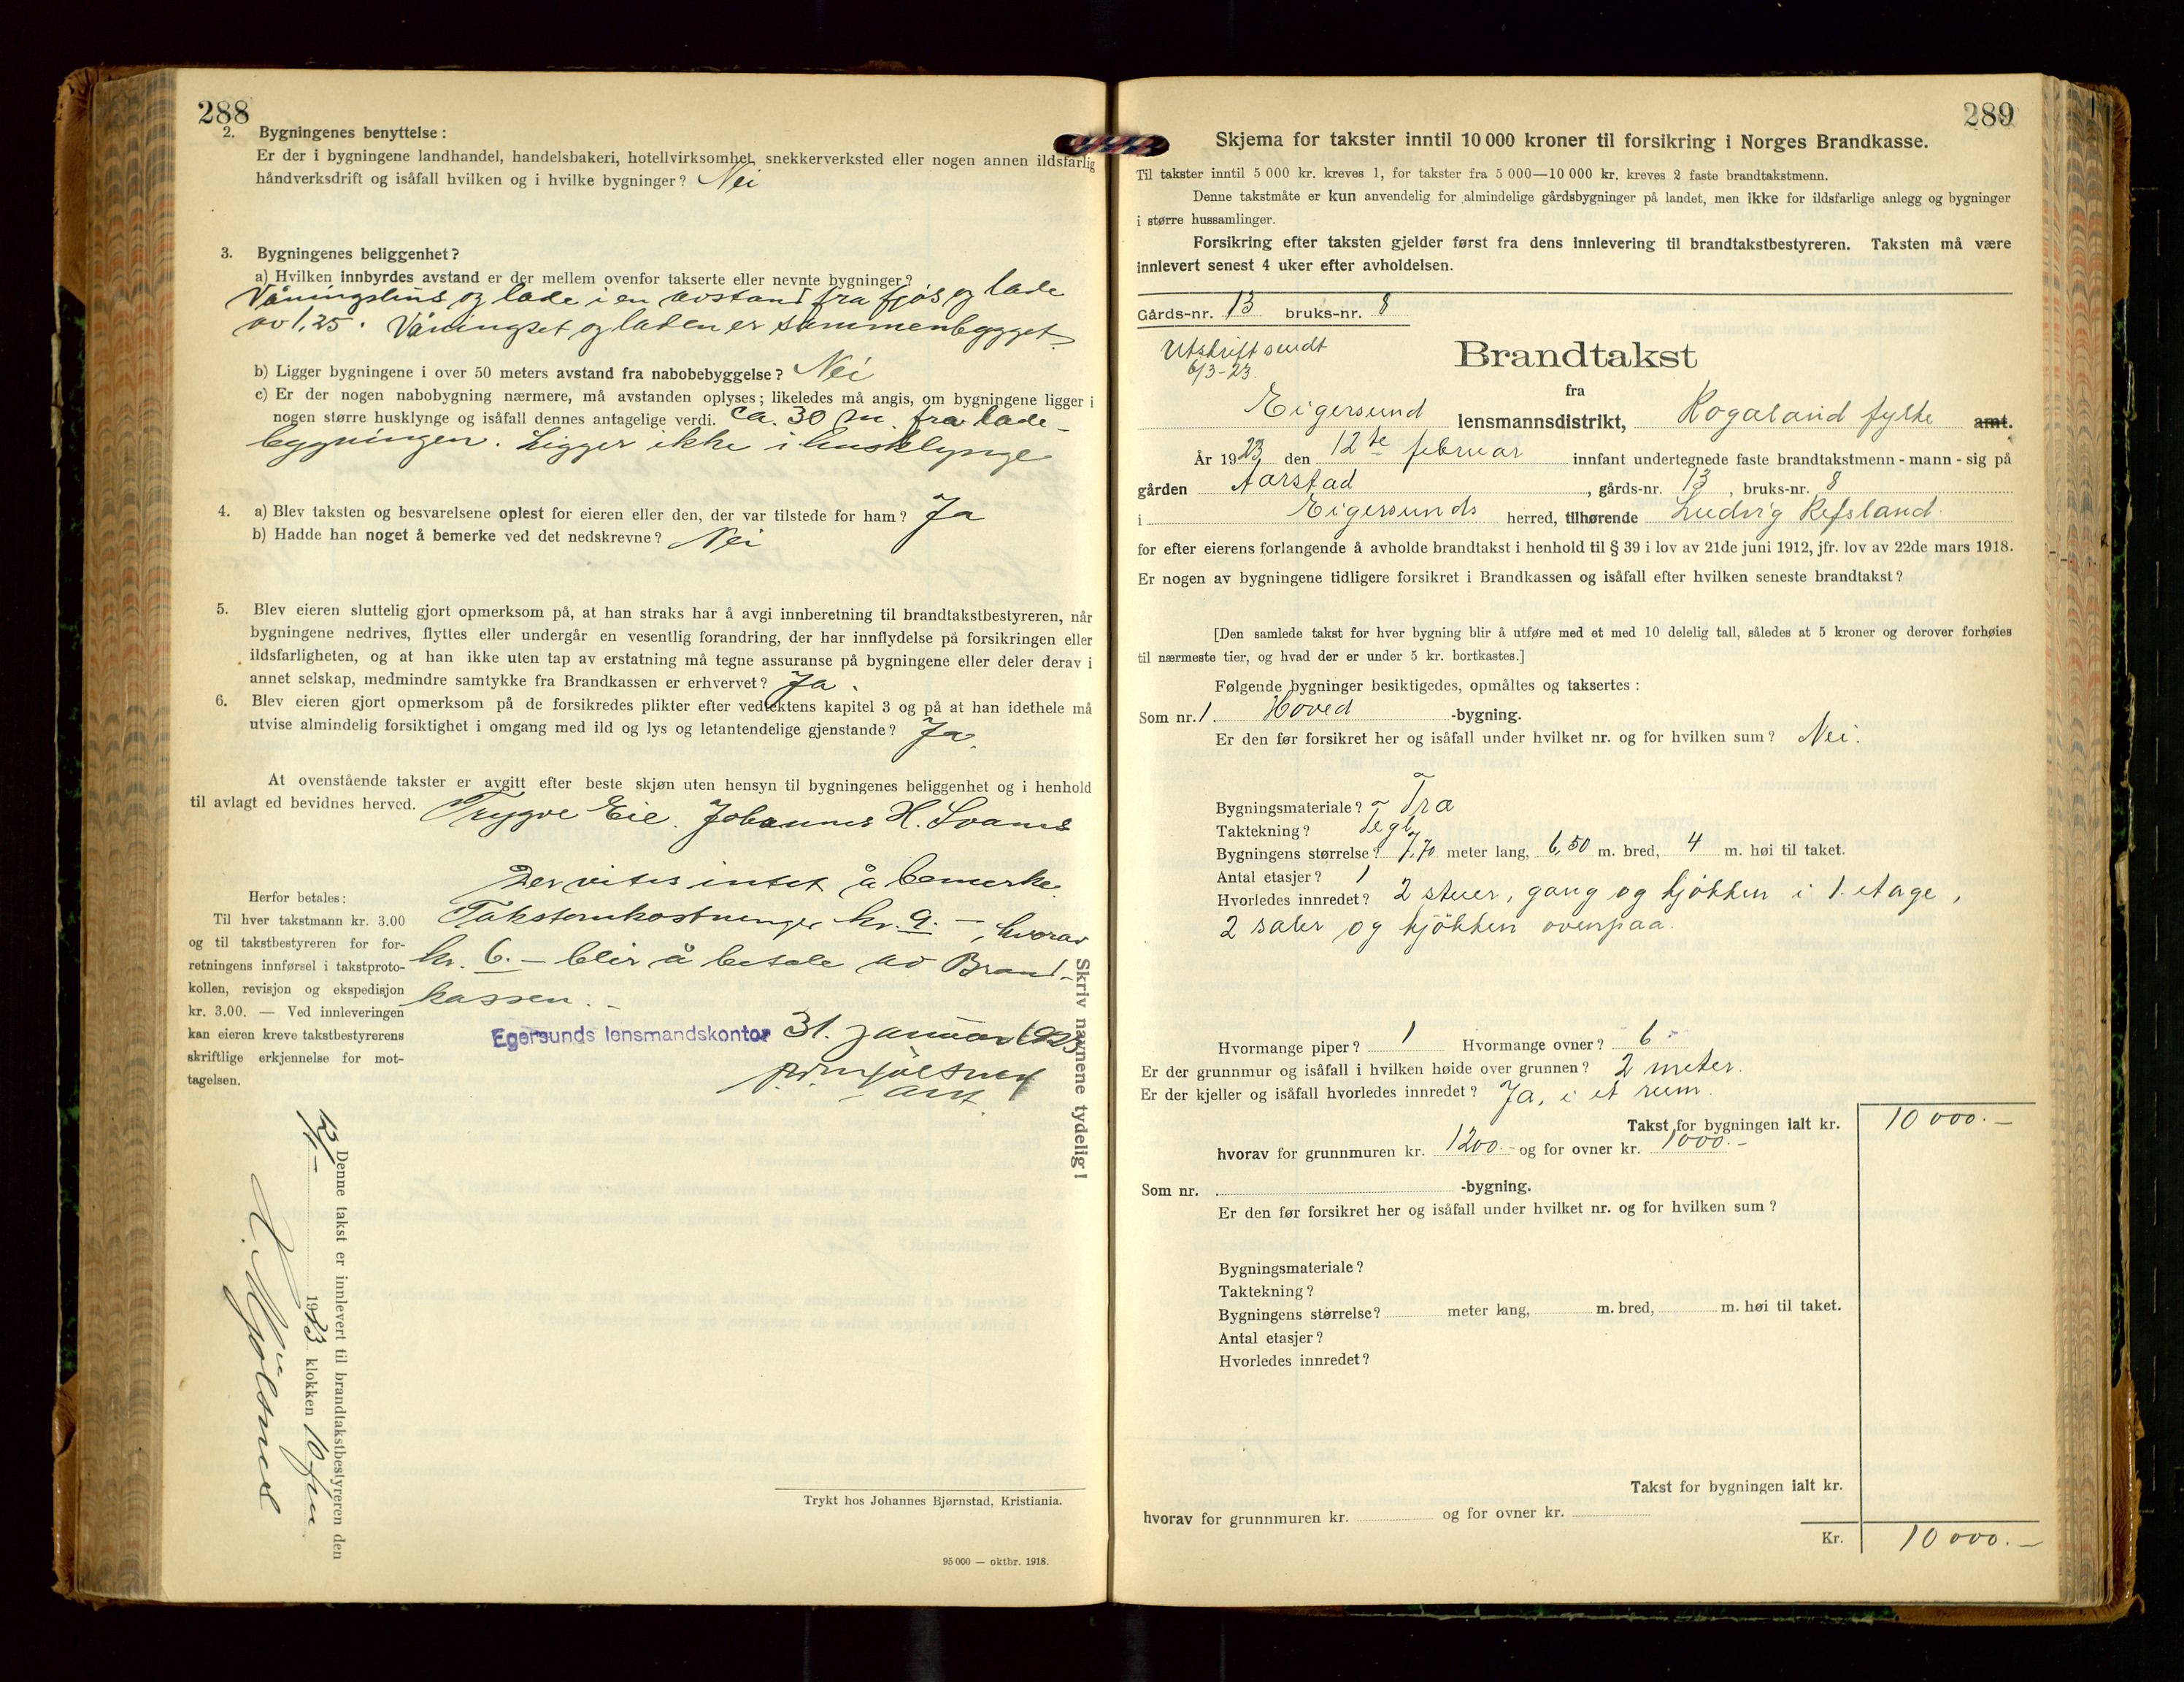 288
2. Bygningenes benyttelse:
Er der i bygningene landhandel, handelsbakeri, hotellvirksomhet, snekkerverksted eller nogen annen ildsfarlig
håndverksdrift og isåfall hvilken og i hvilke bygninger? Nei
3. Bygningenes beliggenhet?
a) Hvilken innbyrdes avstand er der mellem ovenfor takserte eller nevnte bygninger?
Våningshus og lade i en avstand fra fjøs og lade
av 1,25. Våningset og laden er sammenbygget
b) Ligger bygningene i over 50 meters avstand fra nabobebyggelse? Nei
c) Er der nogen nabobygning nærmere, må avstanden oplyses; likeledes må angis, om bygningene ligger i
nogen større husklynge og isåfall dennes antagelige verdi. Ca. 30 m. fra lade-
bygningen. Ligger ikke i husklynge
4. a) Blev taksten og besvarelsene oplest for eieren eller den, der var tilstede for ham? Ja
b) Hadde han noget å bemerke ved det nedskrevne? Nei
5. Blev eieren sluttelig gjort opmerksom på, at han straks har å avgi innberetning til brandtakstbestyreren, når
bygningene nedrives, flyttes eller undergår en vesentlig forandring, der har innflydelse på forsikringen eller
ildsfarligheten, og at han ikke uten tap av erstatning må tegne assuranse på bygningene eller deler derav i
annet selskap, medmindre samtykke fra Brandkassen er erhvervet? Ja.
6. Blev eieren gjort opmerksom på de forsikredes plikter efter vedtektens kapitel 3 og på at han idethele må
utvise almindelig forsiktighet i omgang med ild og lys og letantendelige gjenstande? Ja.
At ovenstående takster er avgitt efter beste skjøn uten hensyn til bygningenes beliggenhet og i henhold
til avlagt ed bevidnes herved. Trygve Eie. Johannes H. Svanes
Der vites intet å bemerke
Takstomkostninger kr. 9.—, hvorav
kr. 6.— blir å betale av Brand-
kassen.—
Egersunds lensmandskontor 31. januar 1923
Herfor betales:
Til hver takstmann kr. 3.00
og til takstbestyreren for for-
retningens innførsel i takstproto-
kollen, revisjon og ekspedisjon
kr. 3.00. — Ved innleveringen
kan eieren kreve takstbestyrerens
skriftlige erkjennelse for mot-
tagelsen.
Skriv navnene tydelig!
Denne takst er innlevert til brandtakstbestyreren den
1923 klokken 10 fm
Trykt hos Johannes Bjørnstad, Kristiania.
95 000 — oktbr. 1918.
289
Skjema for takster inntil 10 000 kroner til forsikring i Norges Brandkasse.
Til takster inntil 5 000 kr. kreves 1, for takster fra 5 000—10 000 kr. kreves 2 faste brandtakstmenn.
Denne takstmåte er kun anvendelig for almindelige gårdsbygninger på landet, men ikke for ildsfarlige anlegg og bygninger
i større hussamlinger.
Forsikring efter taksten gjelder først fra dens innlevering til brandtakstbestyreren. Taksten må være
innlevert senest 4 uker efter avholdelsen.
Gårds-nr. 13 bruks-nr. 8
Utskrift sendt
6/3-23.
Brandtakst
fra
Eigersund lensmannsdistrikt, Rogaland fylke amt.
År 1923 den 12te februar innfant undertegnede faste brandtakstmenn - mann - sig på
gården Aarstad, gårds-nr. 13, bruks-nr. 8
i Eigersunds herred, tilhørende Ludvig Refsland.
for efter eierens forlangende å avholde brandtakst i henhold til § 39 i lov av 21de juni 1912, jfr. lov av 22de mars 1918.
Er nogen av bygningene tidligere forsikret i Brandkassen og isåfall efter hvilken seneste brandtakst?
[Den samlede takst for hver bygning blir å utføre med et med 10 delelig tall, således at 5 kroner og derover forhøies
til nærmeste tier, og hvad der er under 5 kr. bortkastes.]
Følgende bygninger besiktigedes, opmåltes og taksertes:
Som nr. 1 Hoved -bygning.
Er den før forsikret her og isåfall under hvilket nr. og for hvilken sum? Nei.
Bygningsmateriale? Træ
Taktekning? Tegl
Bygningens størrelse? 7,70 meter lang, 6,50 m. bred, 4 m. høi til taket.
Antal etasjer? 1
Hvorledes innredet? 2 stuer, gang og kjøkken i 1. etage,
2 saler og kjøkken ovenpaa.
Hvormange piper? 1 Hvormange ovner? 6
Er der grunnmur og isåfall i hvilken høide over grunnen? 2 meter.
Er der kjeller og isåfall hvorledes innredet? Ja, i et rum.
Takst for bygningen ialt kr. 10 000.—
hvorav for grunnmuren kr. 1200.— og for ovner kr. 1000.—
Som nr. -bygning.
Er den før forsikret her og isåfall under hvilket nr. og for hvilken sum?
Bygningsmateriale?
Taktekning?
Bygningens størrelse? meter lang, m. bred, m. høi til taket.
Antal etasjer?
Hvorledes innredet?
Takst for bygningen ialt kr.
hvorav for grunnmuren kr. og for ovner kr.
Kr. 10 000.—